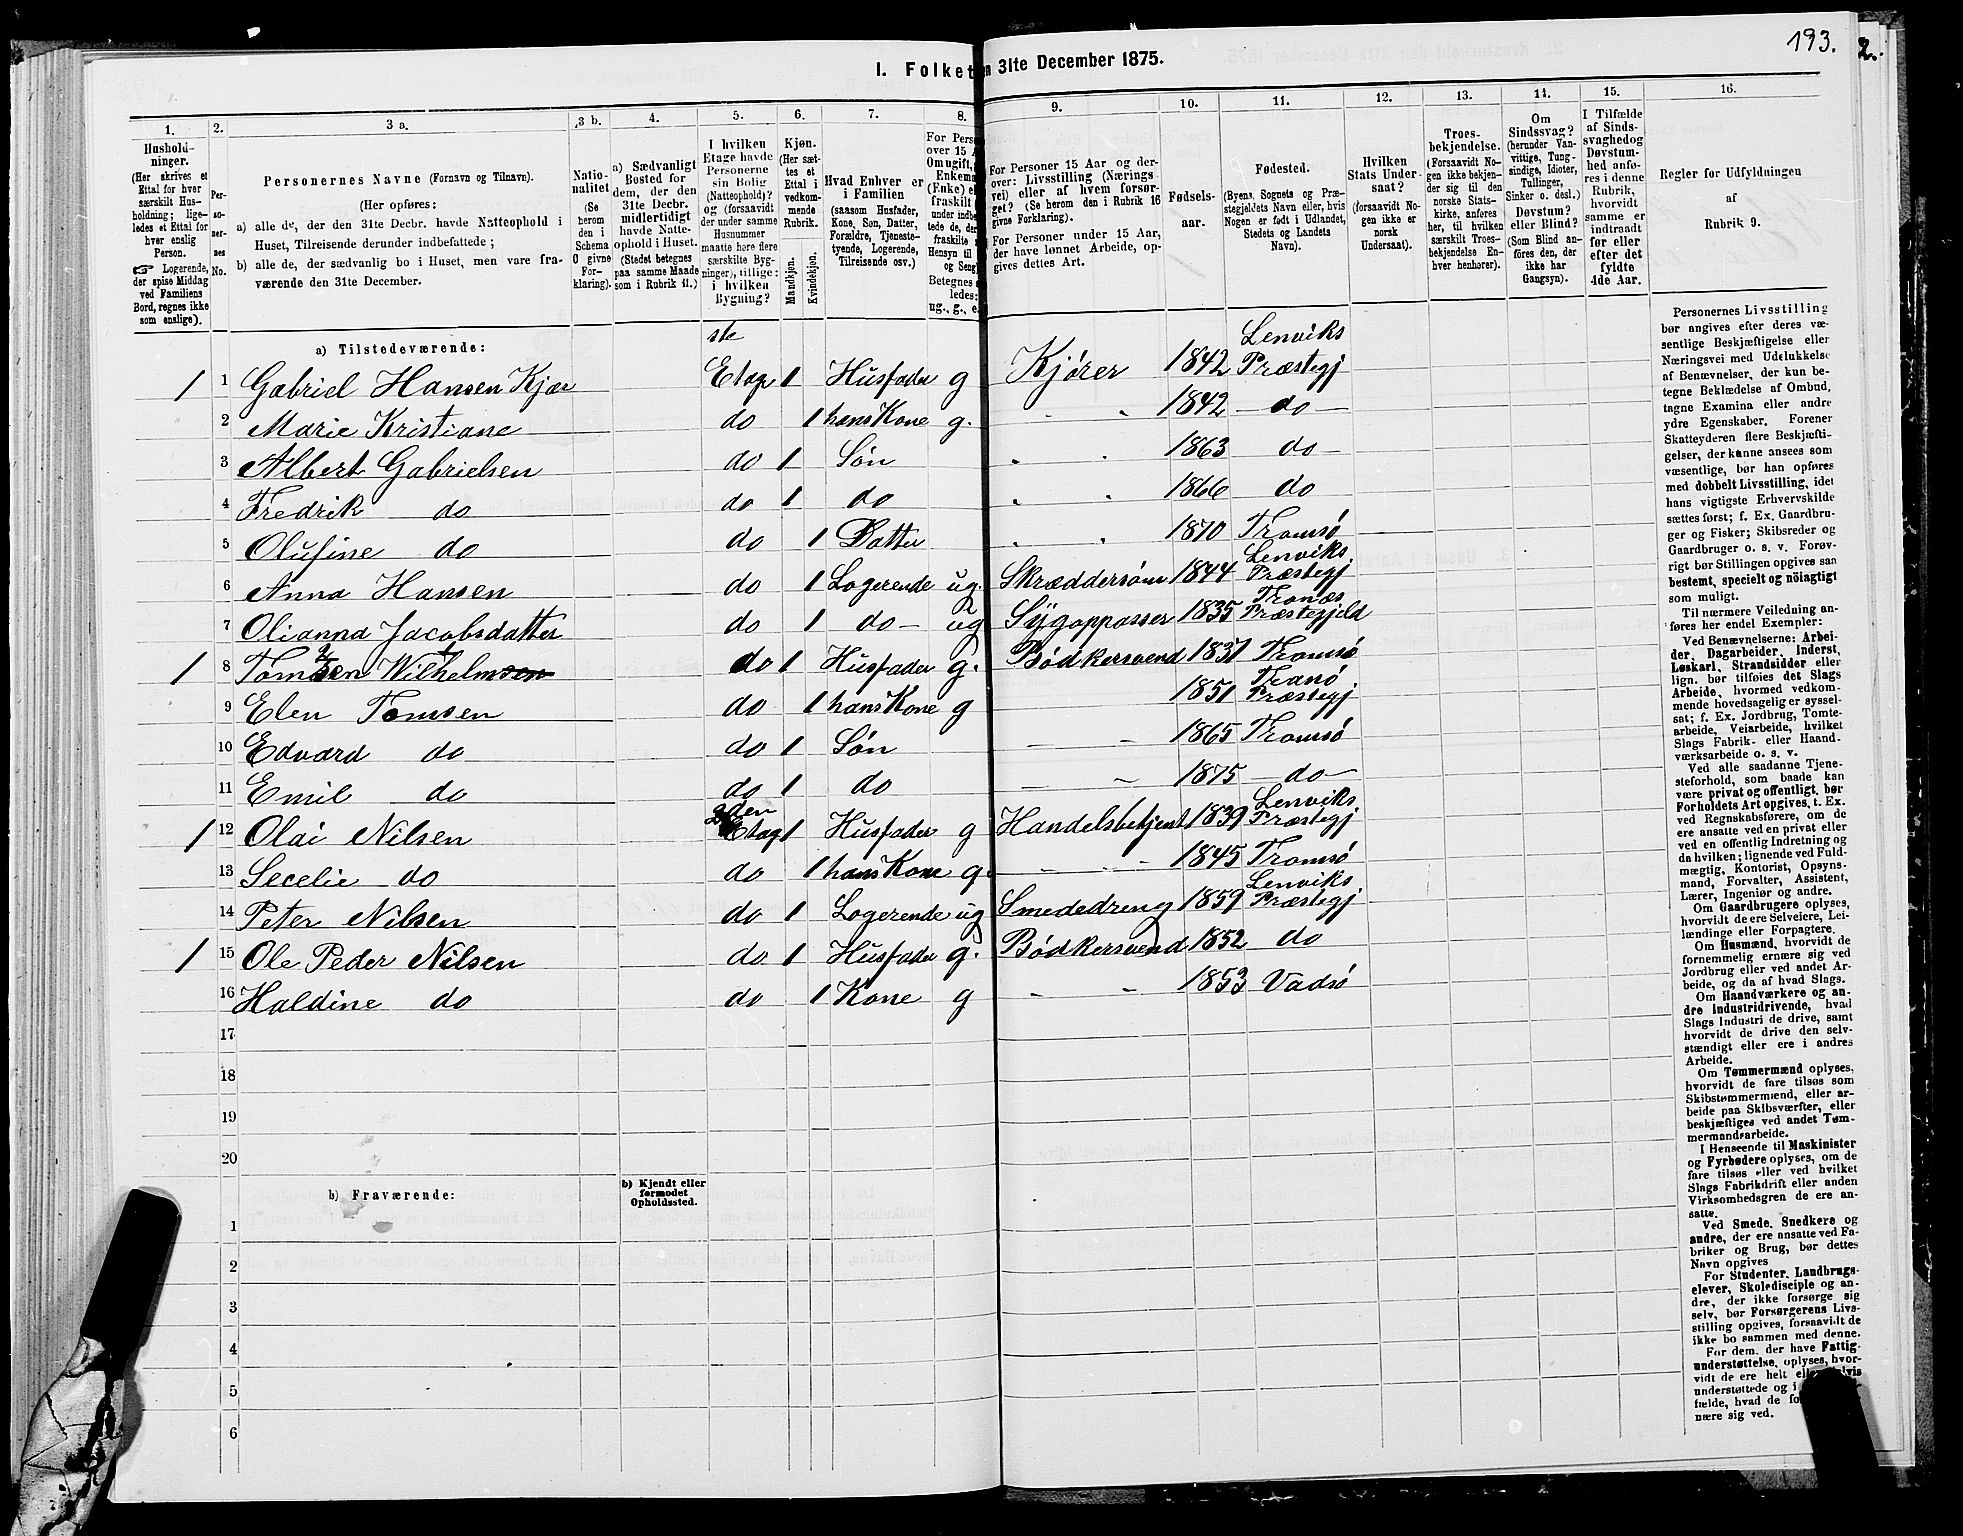 193.
2.
I. Folket
n 31te December 1875.
1.
2.
3 a.
3 b.
4.
5.
6.
7.
8.
9.
10.
11.
12.
13.
14.
15.
16.
Hushold-
ninger.
(Her skrives et
Ettal for hver
særskilt Hus-
holdning; lige-
ledes et Ettal for
hver enslig
Person.
☞ Logerende,
der spise Middag
ved Familiens
Bord, regnes ikke
som enslige).
Per-
so-
ner-
nes
No.
Personernes Navne (Fornavn og Tilnavn).
(Her opføres:
a) alle de, der den 31te Decbr. havde Natteophold i
Huset, Tilreisende derunder indbefattede;
b) alle de, der sædvanlig bo i Huset, men vare fra-
værende den 31te December.
Natio-
nalitet
(Se
herom
den i
Schema
O givne
For-
klaring).
a) Sædvanligt
Bosted for
dem, der den
31te Decbr.
midlertidigt
havde Natte-
ophold i Huset.
(Stedet betegnes
paa samme Maade
som i Rubrik 11.)
I hvilken
Etage havde
Personerne
sin Bolig
(Natteophold)?
og (forsaavidt
der under samme
Husnummer
maatte høre flere
særskilte Byg-
ninger), tillige:
i hvilken
Bygning?
Kjøn.
(Her sæt-
tes et
Ettal i
vedkom-
mende
Rubrik.
Mandkjøn.
Kvindekjøn.
Hvad Enhver er
i Familien
(saasom Husfader,
Kone, Søn, Datter,
Forældre, Tjeneste-
tyende, Logerende,
Tilreisende osv.)
For Pers
over 15 A
Om ugift,
Enkema
(Enke) e
fraskilt
under indbe
tede de, der
fraskilte
Hensyn til
og Seng
Betegnes
ledes:
ug., g., e.
For Personer 15 Aar og der-
over: Livsstilling (Nærings-
vei) eller af hvem forsør-
get? (Se herom den i Rubrik 16
givne Forklaring).
For Personer under 15 Aar,
der have lønnet Arbeide, op-
gives dettes Art.
Fødsels-
aar.
Fødested.
(Byens, Sognets og Præ-
stegjeldets Navn eller, hvis
Nogen er født i Udlandet,
Stedets og Landets
Navn).
Hvilken
Stats Under-
saat?
(forsaavidt No-
gen ikke er
norsk
Undersaat).
Troes-
bekjendelse.
(Forsaavidt No-
gen ikke bekjen-
der sig til den
norske Stats-
kirke, anføres
her, til hvilken
særskilt Troes-
bekjendelse En-
hver henhører).
Om
Sindssvag?
(herunder Van-
vittige, Tung-
sindige, Idioter,
Tullinger,
Sinker o. desl.)
Døvstum?
eller Blind?
(Som Blind an-
føres den, der
ikke har
Gangsyn).
I Tilfælde
af Sinds-
svaghed og
Døvstum-
hed anfø-
res i denne
Rubrik,
hvorvidt
samme er
indtraadt
før eller
efter det
fyldte
4de Aar.
Regler for Udfyldningen
af
Rubrik 9.
a) Tilstedeværende:
ste
Lenviks
1 1 Gabriel Hansen Kjær Etage 1 Husfader g Kjører 1842 Præstegj
2 Marie Kristiane do 1 hans Kone g. 1842 – do –
3 Albert Gabrielsen do 1 Søn 1863 do –
4 Fredrik do do 1 do 1866 do
5 Olufine do do 1 Datter 1870 Tromsø
Lenviks
6 Anna Hansen do 1 Logerende ug. Skræddersøm 1844 Præstegj
7 Olianna Jacobsdatter do 1 do – ug Sygopasser 1835 Præstegjeld
1 8 Wilhelmsen do 1 Husfader g. Bødkersvend Tromsø
Tranø
9 Elen Tomsen do 1 hans Kone g 1851 Præstegj
10 Edvard do do 1 Søn 1865 Tromsø
11 Emil do do 1 do 1875 – do –
2den
Lenviks
1 12 Olai Nilsen Etag 1 Husfader g Handelsbetjent 1839 Præstegj
13 Secelie do do 1 hans Kone g. 1845 Tromsø
Lenviks
14 Peter Nilsen do 1 Logerende ug Smededreng 1859 Præstegj
1 15 Ole Peder Nilsen do 1 Husfader g. Bødkersvend 1852 do
16 Haldine do do 1 Kone g 1853 Vadsø
17
18
19
20
b) Fraværende:
b) Kjendt eller
formodet
Opholdssted.
1
2
3
4
5
6
Personernes Livsstilling
bør angives efter deres væ-
sentlige Beskjæftigelse eller
Næringsvei med Udelukkelse
af Benævnelser, der kun be-
tegne Beklædelse af Ombud,
tagne Examina eller andre
ydre Egenskaber. Forener
Skatteyderen flere Beskjæfti-
gelser, der kunne ansees som
væsentlige, bør han opføres
med dobbelt Livsstilling, idet
hans vigtigste Erhvervskilde
sættes først; f. Ex. Gaardbru-
ger og Fisker; Skibsreder og
Gaardbruger o. s. v. Forøv-
rigt bør Stillingen opgives saa
bestemt, specielt og nöiagtigt
som muligt.
Til nærmere Veiledning an-
føres her endel Exempler:
Ved Benævnelserne: Arbei-
der, Dagarbeider, Inderst,
Løskarl, Strandsidder eller
lign. bør tilføies det Slags
Arbeide, hvormed vedkom-
mende hovedsagelig er syssel-
sat; f. Ex. Jordbrug, Tomte-
arbeide, Veiarbeide, hvilket
Slags Fabrik- eller Haand-
værksarbeide o. s. v.
Ved alle saadanne Tjene-
steforhold, som baade kan
være privat og offentligt, bør
Forholdets Art opgives, t. Ex.
ved Regnskabsførere, om de
ere ansatte ved en privat eller
ved en offentlig Indretning og
da hvilken; lignende ved Fuld-
mægtig, Kontorist, Opsyns-
mand, Forvalter, Assistent,
Lærer, Ingeniør og andre.
Om Gaardbrugere oplyses,
hvorvidt de ere Selveiere, Lei-
lændinge eller Forpagtere.
Om Husmænd, hvorvidt de
fornemmelig ernære sig ved
Jordbrug eller ved andet Ar-
beide, og da af hvad Slags.
Om Haandværkere og an-
dre Industridrivende, hvad
Slags Industri de drive, samt
hvorvidt de drive den selv-
stændigt eller ere i andres
Arbeide.
Om Tømmermænd oplyses,
hvorvidt de fare tilsøs som
Skibstømmermænd, eller ar-
beide paa Skibsværfter, eller
beskjæftiges ved andet Tøm-
mermandsarbeide.
I Henseende til Maskinister
og Fyrbødere oplyses, om de
fare tilsøs eller ved hvilket
Slags Fabrikdrift eller anden
Virksomhedsgren de ere an-
satte.
Ved Smede, Snedkere og
andre, der ere ansatte ved Fa-
briker og Brug, bør dettes
Navn opgives
For Studenter, Landbrugs-
elever, Skoledisciple og an-
dre, der ikke forsørge sig
selv, bør Forsørgerens Livs-
stilling opgives, forsaavidt de
ikke bo sammen med denne.
For dem, der have Fattig-
understøttelse, oplyses, hvor-
vidt de ere helt elle
understøttede og i
fælde, hvad de fo
nære sig ved.